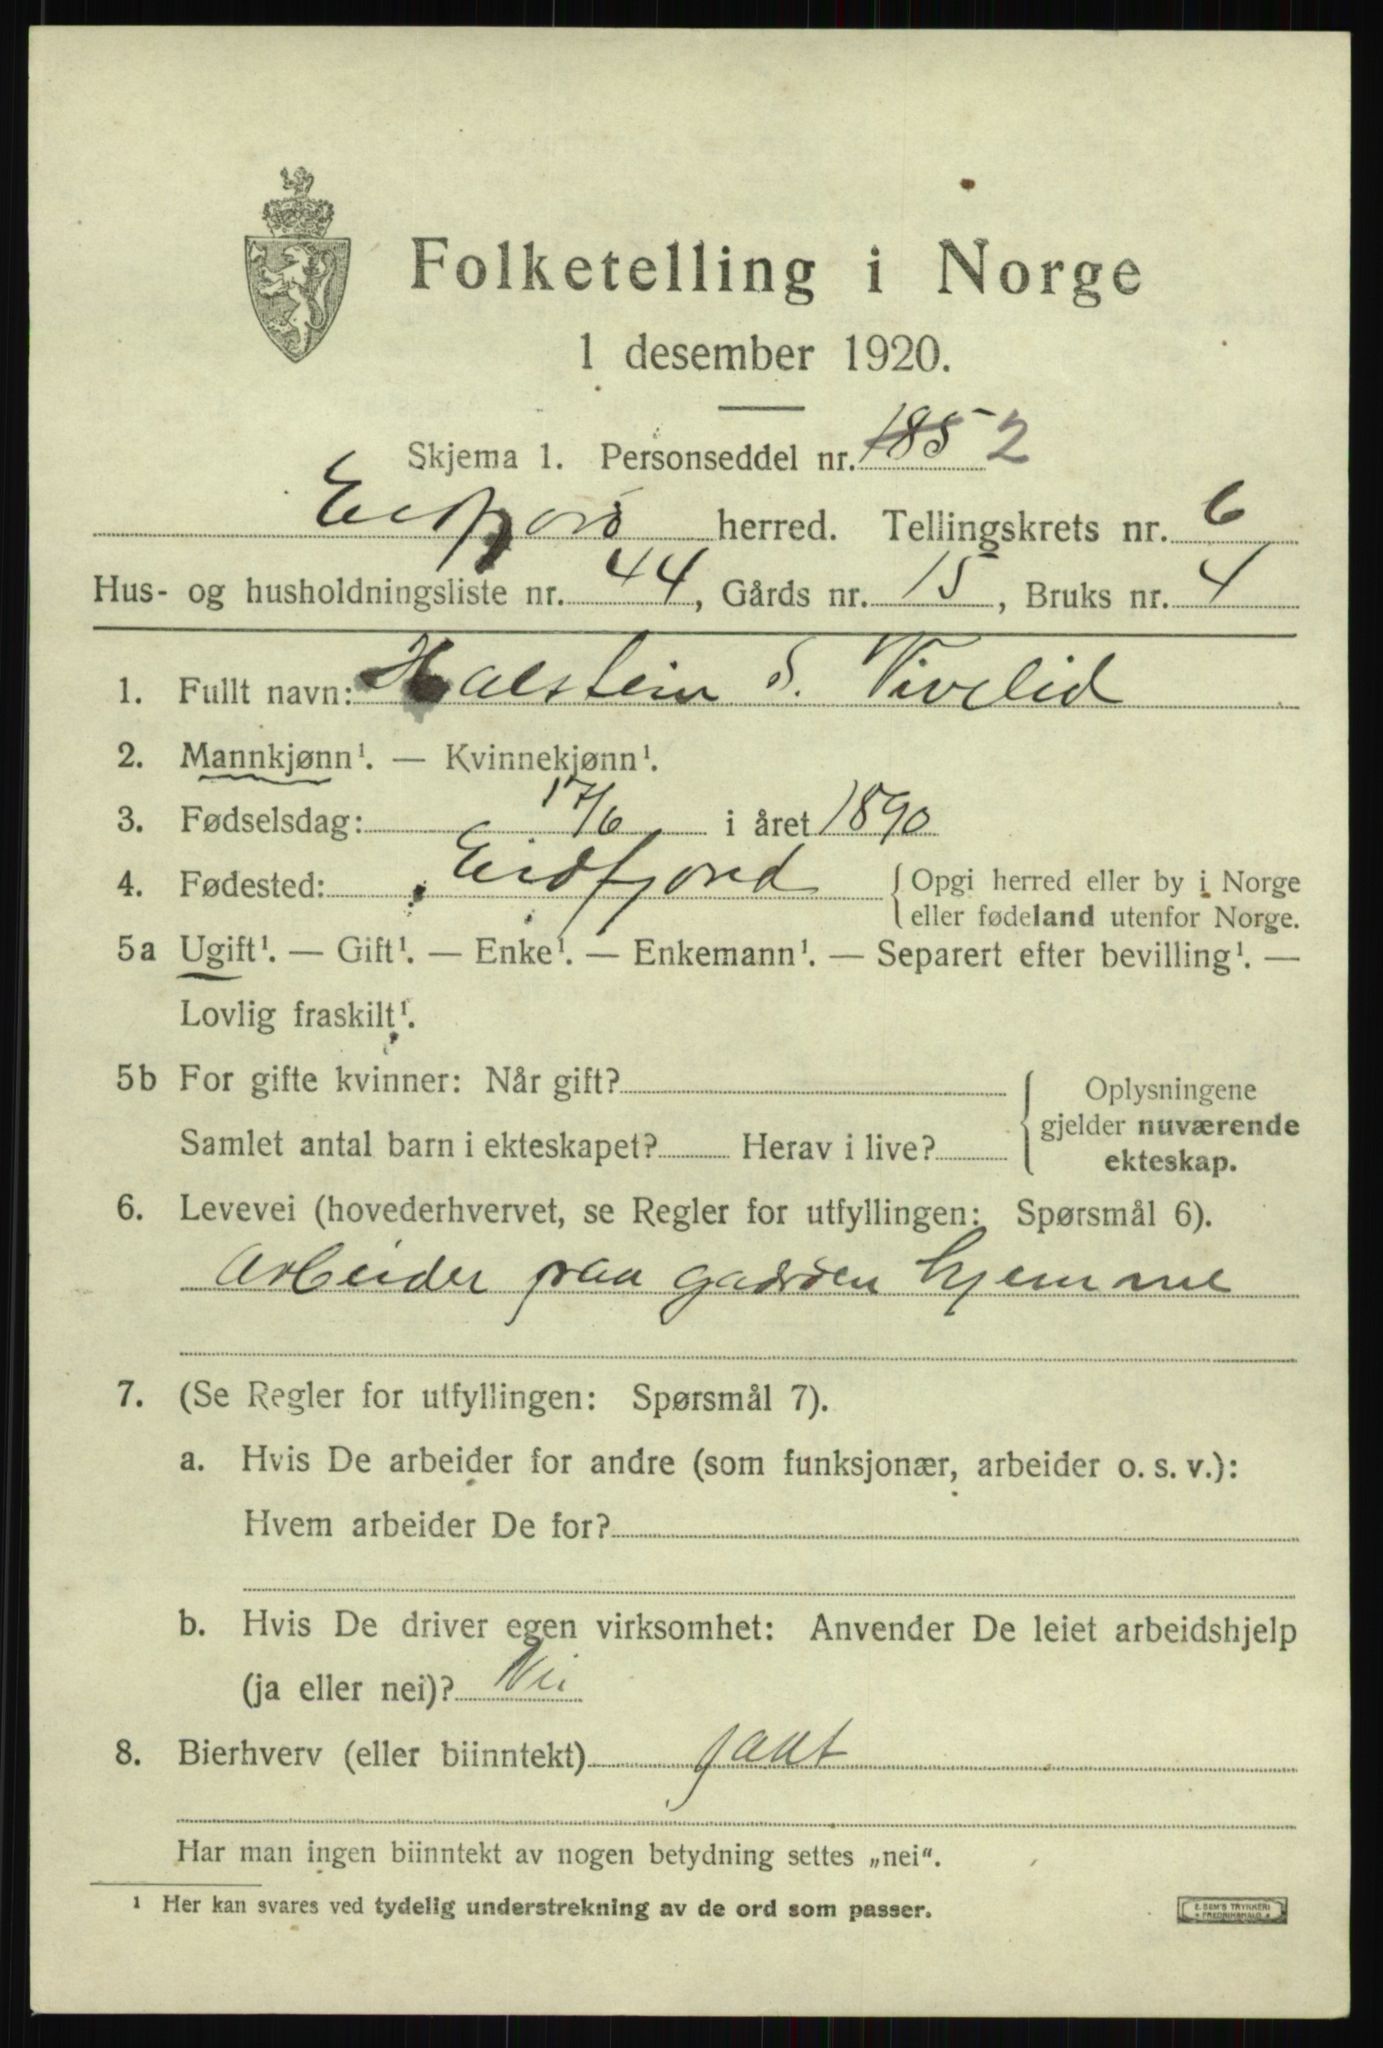 Folketelling i Norge
1 desember 1920.
Skjema 1. Personseddel nr. 185 2
Eidfjord herred. Tellingskrets nr. 6
Hus- og husholdningsliste nr. 44, Gårds nr. 15, Bruks nr. 4
1. Fullt navn: Halstein S. Vivelid
2. Mannkjønn¹. — Kvinnekjønn¹.
3. Fødselsdag: 17/6 i året 1890
4. Fødested: Eidfjord { Opgi herred eller by i Norge
eller fødeland utenfor Norge.
5a Ugift¹. — Gift¹. — Enke¹. — Enkemann¹. — Separert efter bevilling¹. —
Lovlig fraskilt¹.
5b For gifte kvinner: Når gift?
Samlet antal barn i ekteskapet? Herav i live?
{ Oplysningene
gjelder nuværende
ekteskap.
6. Levevei (hovederhvervet, se Regler for utfyllingen: Spørsmål 6).
Arbeider paa gaarden hjemme
7. (Se Regler for utfyllingen: Spørsmål 7).
a. Hvis De arbeider for andre (som funksjonær, arbeider o. s. v.):
Hvem arbeider De for?
b. Hvis De driver egen virksomhet: Anvender De leiet arbeidshjelp
(ja eller nei)? Nei
8. Bierhverv (eller biinntekt) jakt
Har man ingen biinntekt av nogen betydning settes „nei".
¹ Her kan svares ved tydelig understrekning av de ord som passer.
E. SEM'S TRYKKERI
FREDRIKSHALD